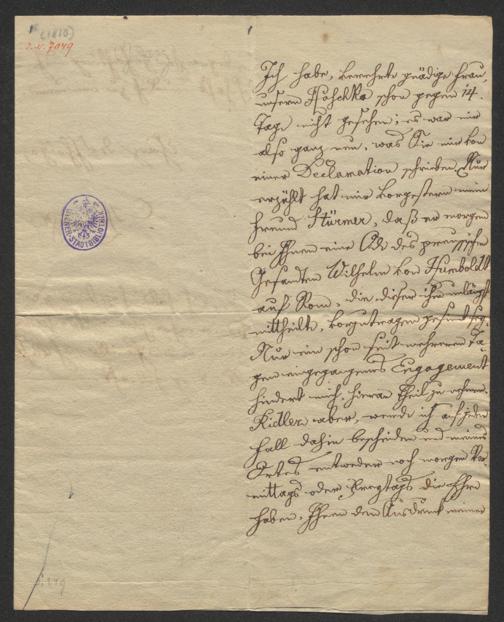 (1810)
I. N. 7049
Ich habe, verehrte gnädige Frau,
unsern Haschka schon gegen 14
Tage nicht gesehen; es war mir
also ganz neu, was Sie mir von
einer Declamation schrieben. Nur
erzählt hat mir vorgestern mein
Freund Stürmer, daß er morgen
bei Ihnen eine Ode des preussischen
Gesandten Wilhelm von Humboldt
auf Rom, die dieser ihm unlängst
mittheilte, vorzutragen gesonnen sey.
Nur ein schon seit mehreren Ta-
gen eingegangenes Engagement
hindert mich, hieran Theil zu nehmen.
Ridler aber, werde ich auf jeden
Fall dahin bescheiden und meines
Ortes entweder noch morgen Vor-
mittags oder Freytags die Ehre
haben, Ihnen den Ausdruck meiner